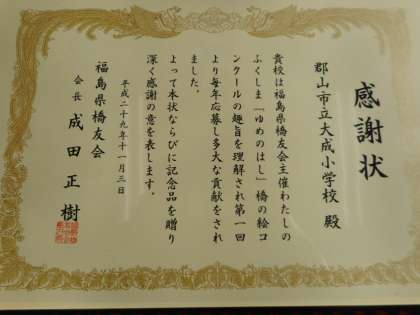 感謝状
郡山市立大成小学校 殿
貴校は福島県橋友会主催わたしの
ふくしま「ゆめのはし」橋の絵コ
ンクールの趣旨を理解され第一回
より毎年応募し多大な貢献をされ
ました。
よって本状ならびに記念品を贈り
深く感謝の意を表します。
平成二十九年十一月三日
福島県橋友会
会長 成田正樹